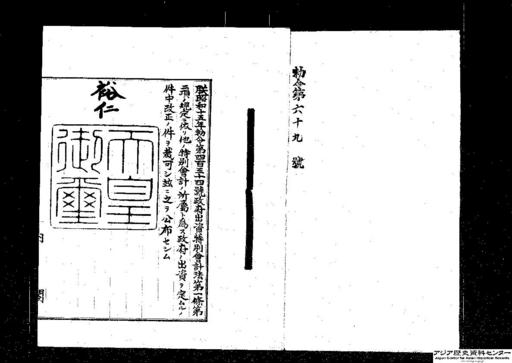 勅令第六十九號
朕昭和十五年勅令第四百五十四號政府出資特別會計法第一條第
二項ノ規定ニ依リ他ノ特別會計ノ所屬ト爲ス政府ノ出資ヲ定ムルノ
件中改正ノ件ヲ裁可シ玆ニ之ヲ公布セシム
裕仁
天皇
御璽
内閣
アジア歴史資料センター
Japan Center for Asian Historical Records